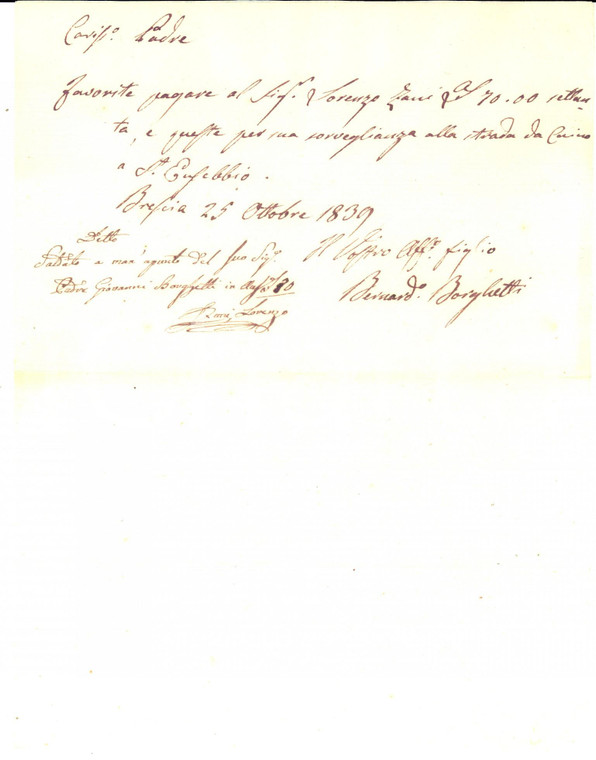 Cariss.º Padre
Favorite pagare al Sig.r Lorenzo Zani 70.00 settan-
ta, e queste per sua sorveglianza alla strada da Caino
a S.t Eusebbio.
Brescia 25 Ottobre 1839
Il Vostro Aff.º figlio
Bernard.º Borghetti
Detto
Saldato a man del suo Sig.r
Padre Giovanni Borghetti in 70
Zani Lorenzo